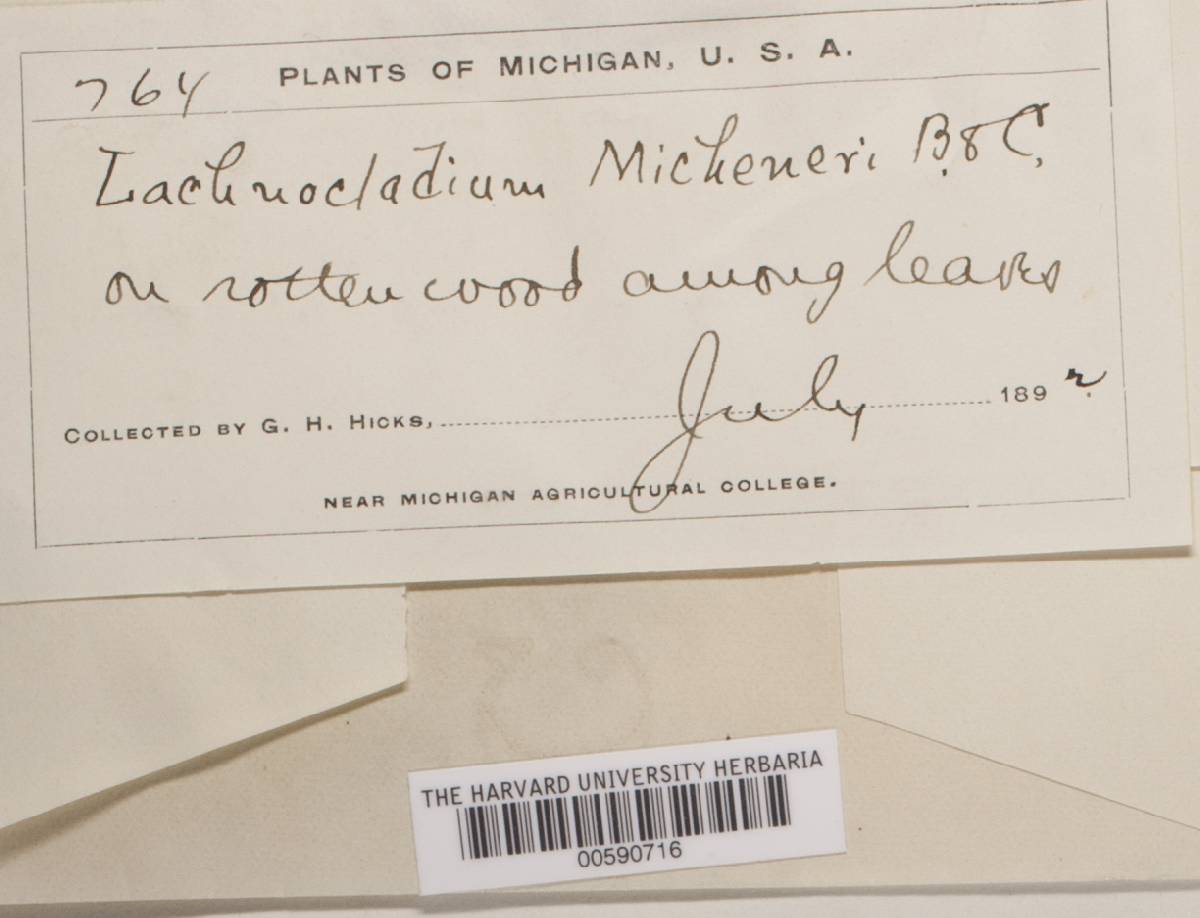 764 PLANTS OF MICHIGAN, U. S. A.
Lachnocladium Micheneri B. & C.
on rotten wood among leaves
COLLECTED BY G. H. HICKS, July 1892.
NEAR MICHIGAN AGRICULTURAL COLLEGE.
THE HARVARD UNIVERSITY HERBARIA
00590716